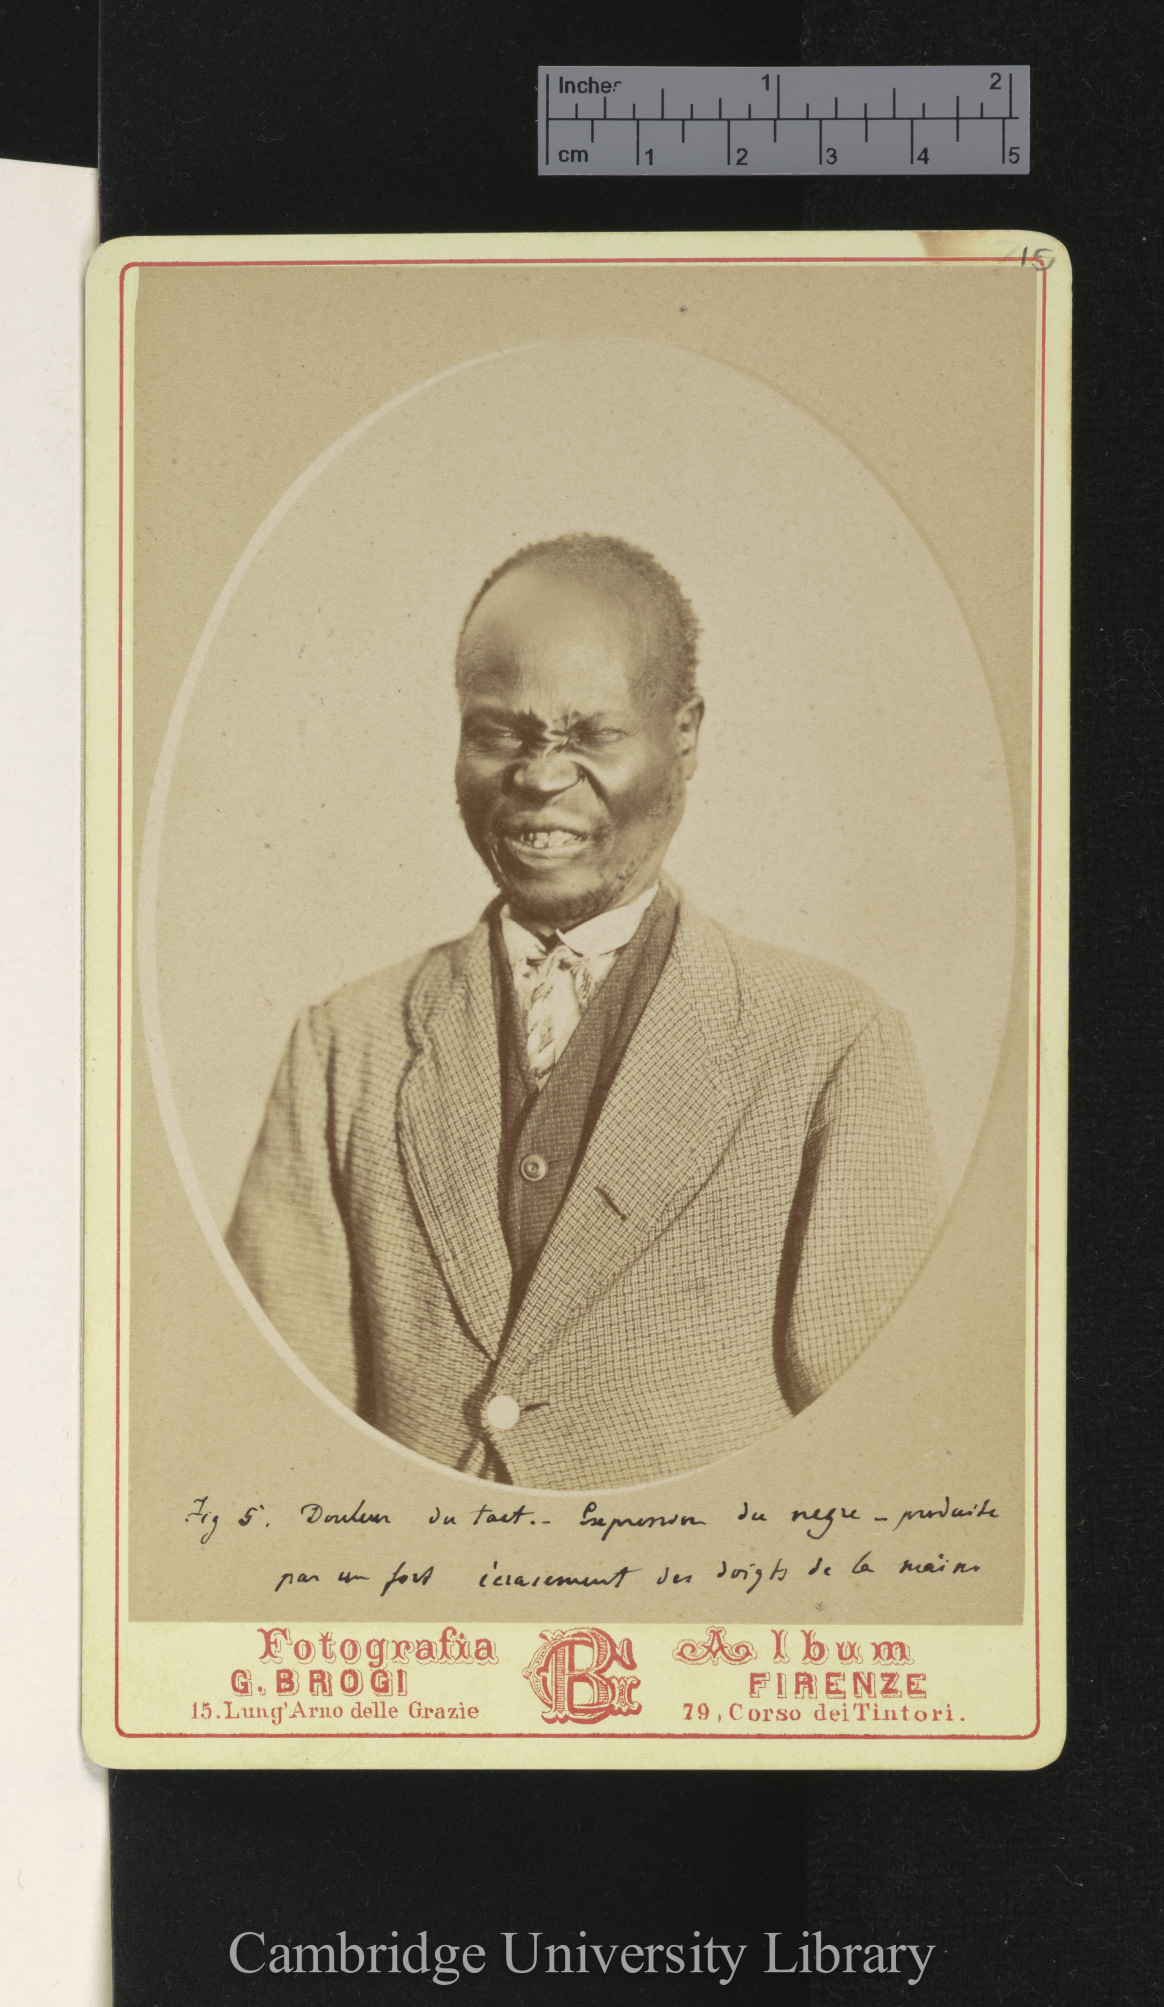 Inches 1 2
cm 1 2 3 4 5
15
Fig 5. Douleur du tact. - Expression du negre - produite
par un fort écrasement des doigts de la main
Fotografia
G. BROGI
15. Lung'Arno delle Grazie
GBr
Album
FIRENZE
79, Corso dei Tintori.
Cambridge University Library